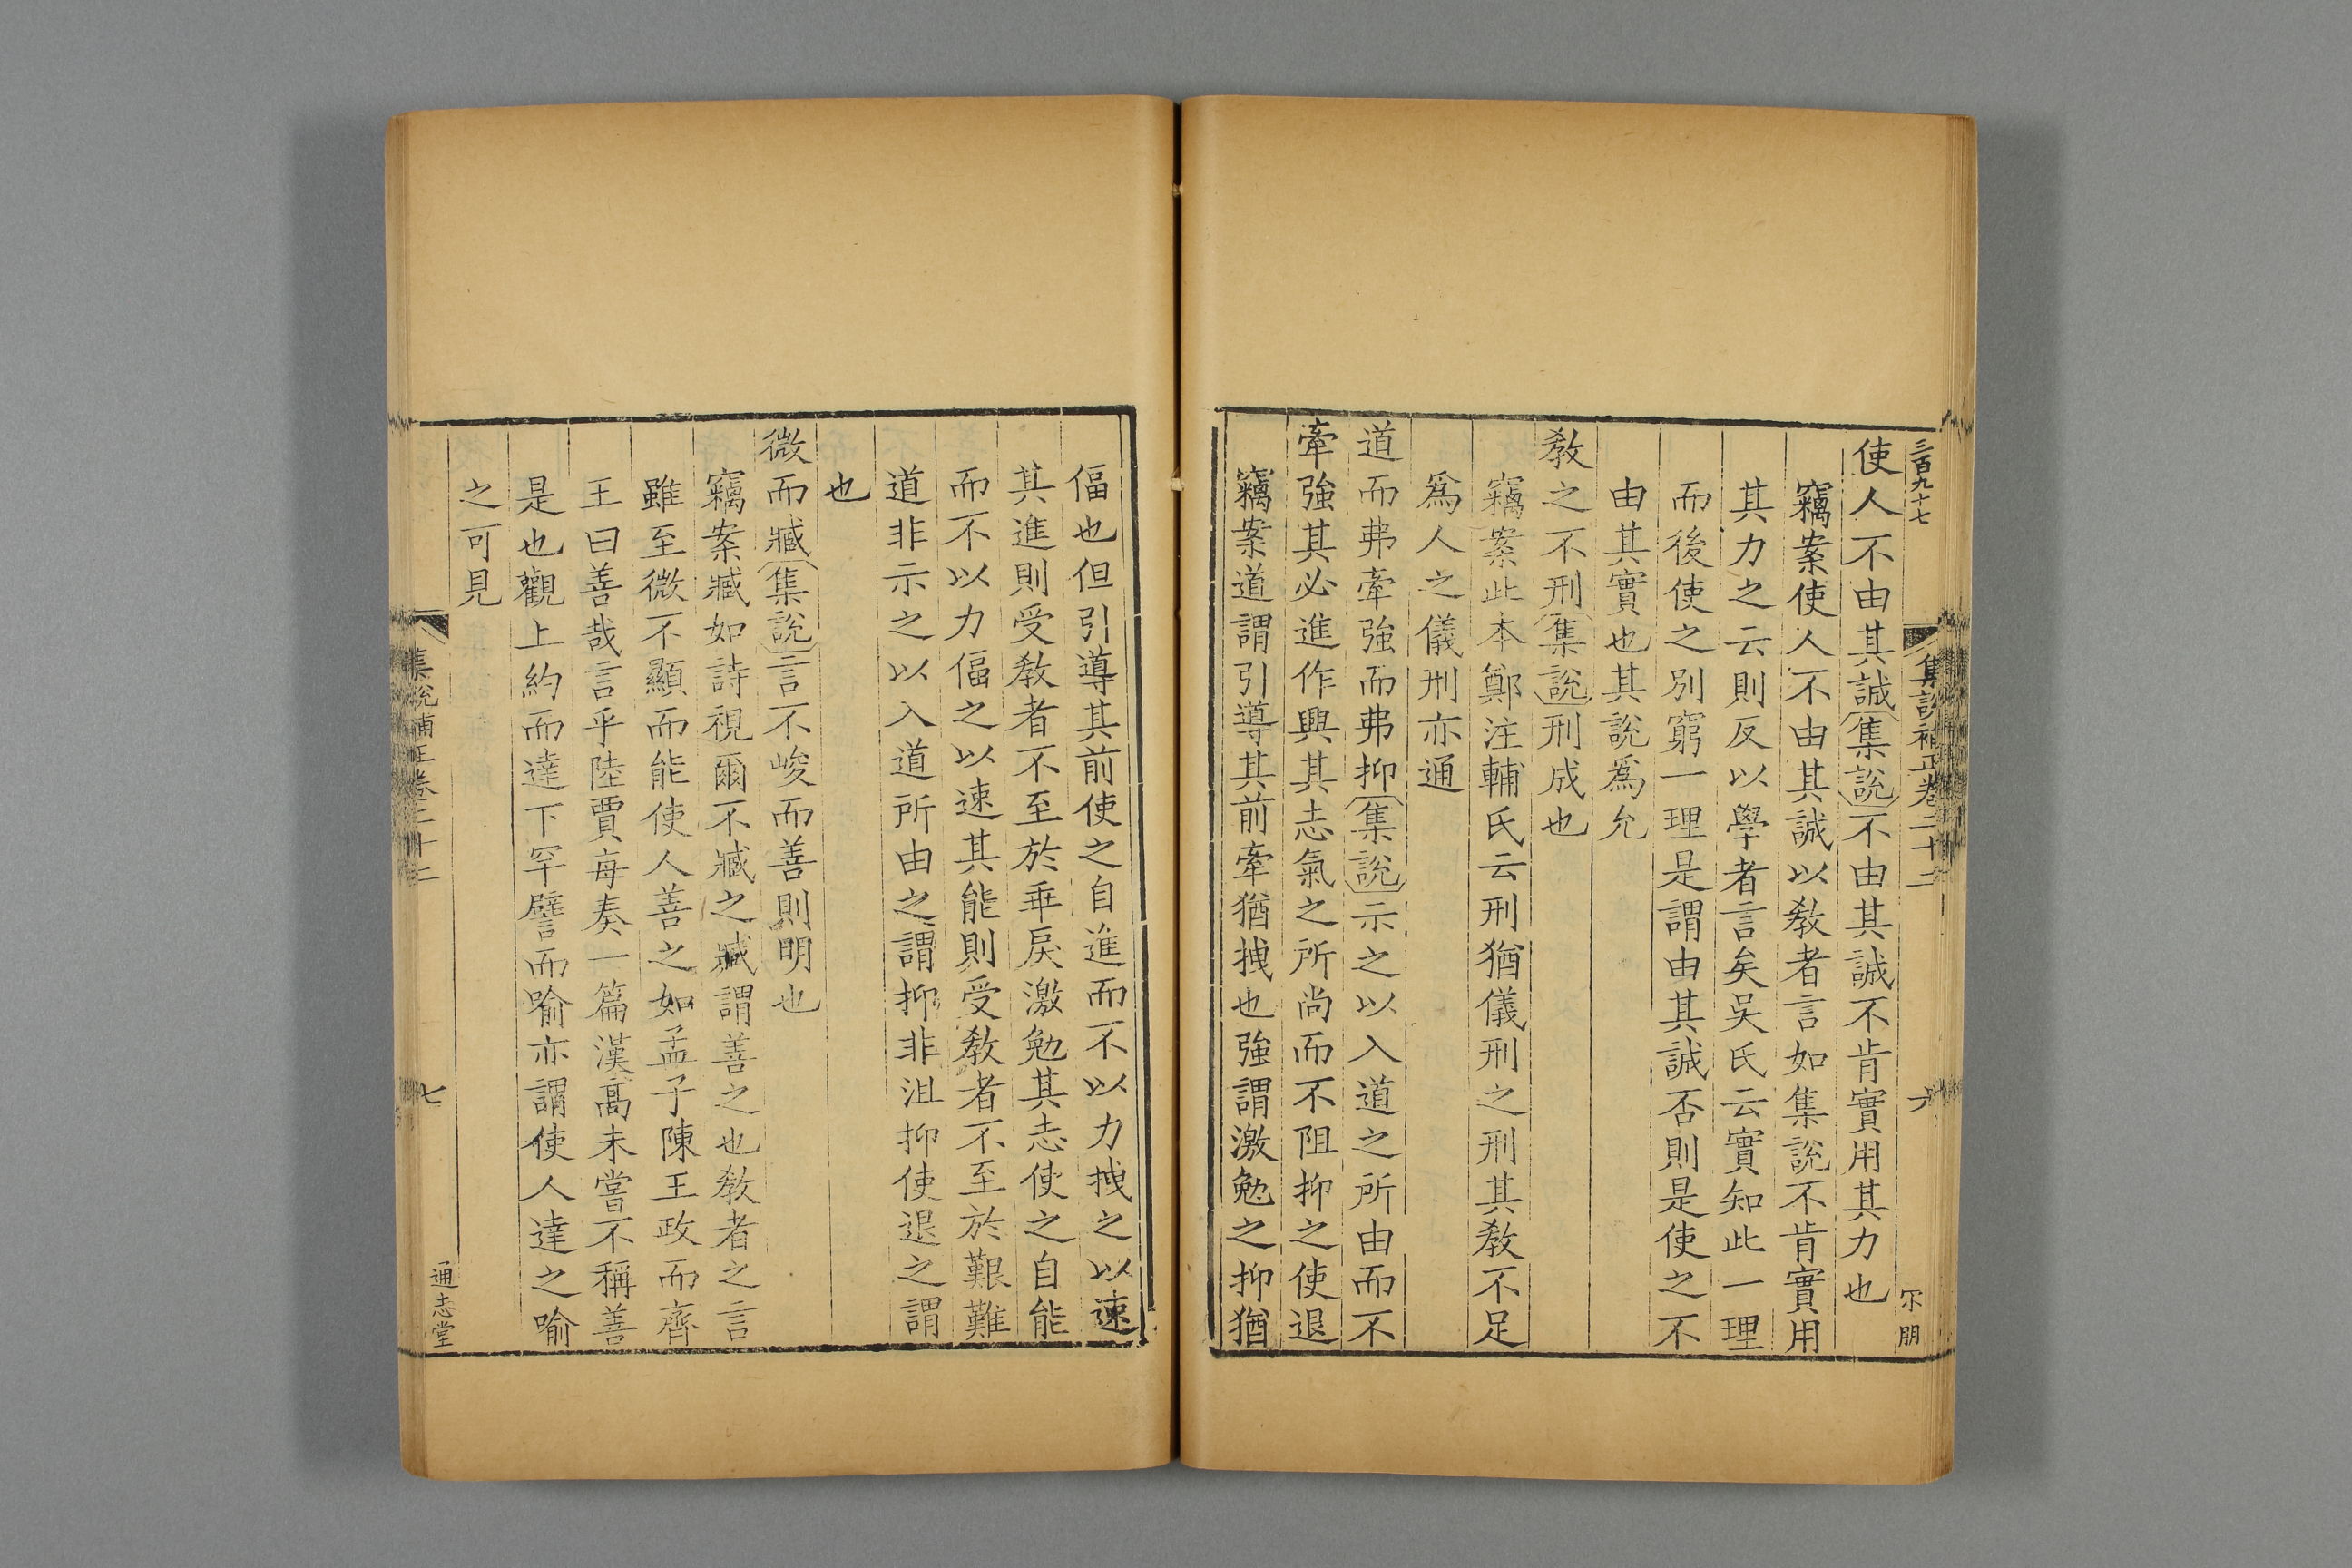 三百九十七
集說補正卷二十二
六
朋
使人不由其誠集說不由其誠不肯實用其力也
竊案使人不由其誠以敎者言如集說不肯實用
其力之云則反以學者言矣吳氏云實知此一理
而後使之別窮一理是謂由其誠否則是使之不
由其實也其說爲允
敎之不刑集說刑成也
竊案此本鄭注輔氏云刑猶儀刑之刑其敎不足
爲人之儀刑亦通
道而弗牽強而弗抑集說示之以入道之所由而不
牽強其必進作興其志氣之所尚而不阻抑之使退
竊案道謂引導其前牽猶拽也強謂激勉之抑猶
偪也但引導其前使之自進而不以力拽之以速
其進則受敎者不至於乖戾激勉其志使之自能
而不以力偪之以速其能則受敎者不至於艱難
道非示之以入道所由之謂抑非沮抑使退之謂
也
微而臧集說言不峻而善則明也
竊案臧如詩視爾不臧之臧謂善之也敎者之言
雖至微不顯而能使人善之如孟子陳王政而齊
王曰善哉言乎陸賈每奏一篇漢高未嘗不稱善
是也觀上約而達下罕譬而喻亦謂使人達之喻
之可見
集說補正卷二十二
七
通志堂